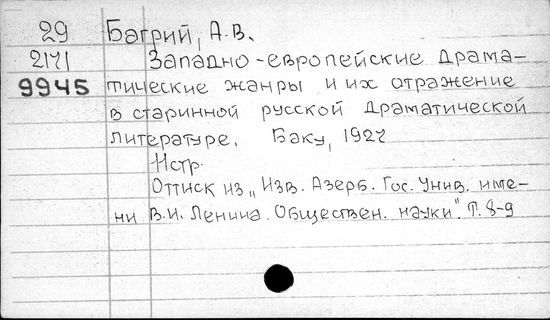 29 Багрий, А.В.
2171 Западно-европейские драма-
9945 тические жанры и их отражение
в старинной русской драматической
литературе. Баку, 1927
11стр.
Оттиск из „Изв. Азерб. Гос. Унив. име-
ни В.И. Ленина. Обществен. науки". Т. 8-9